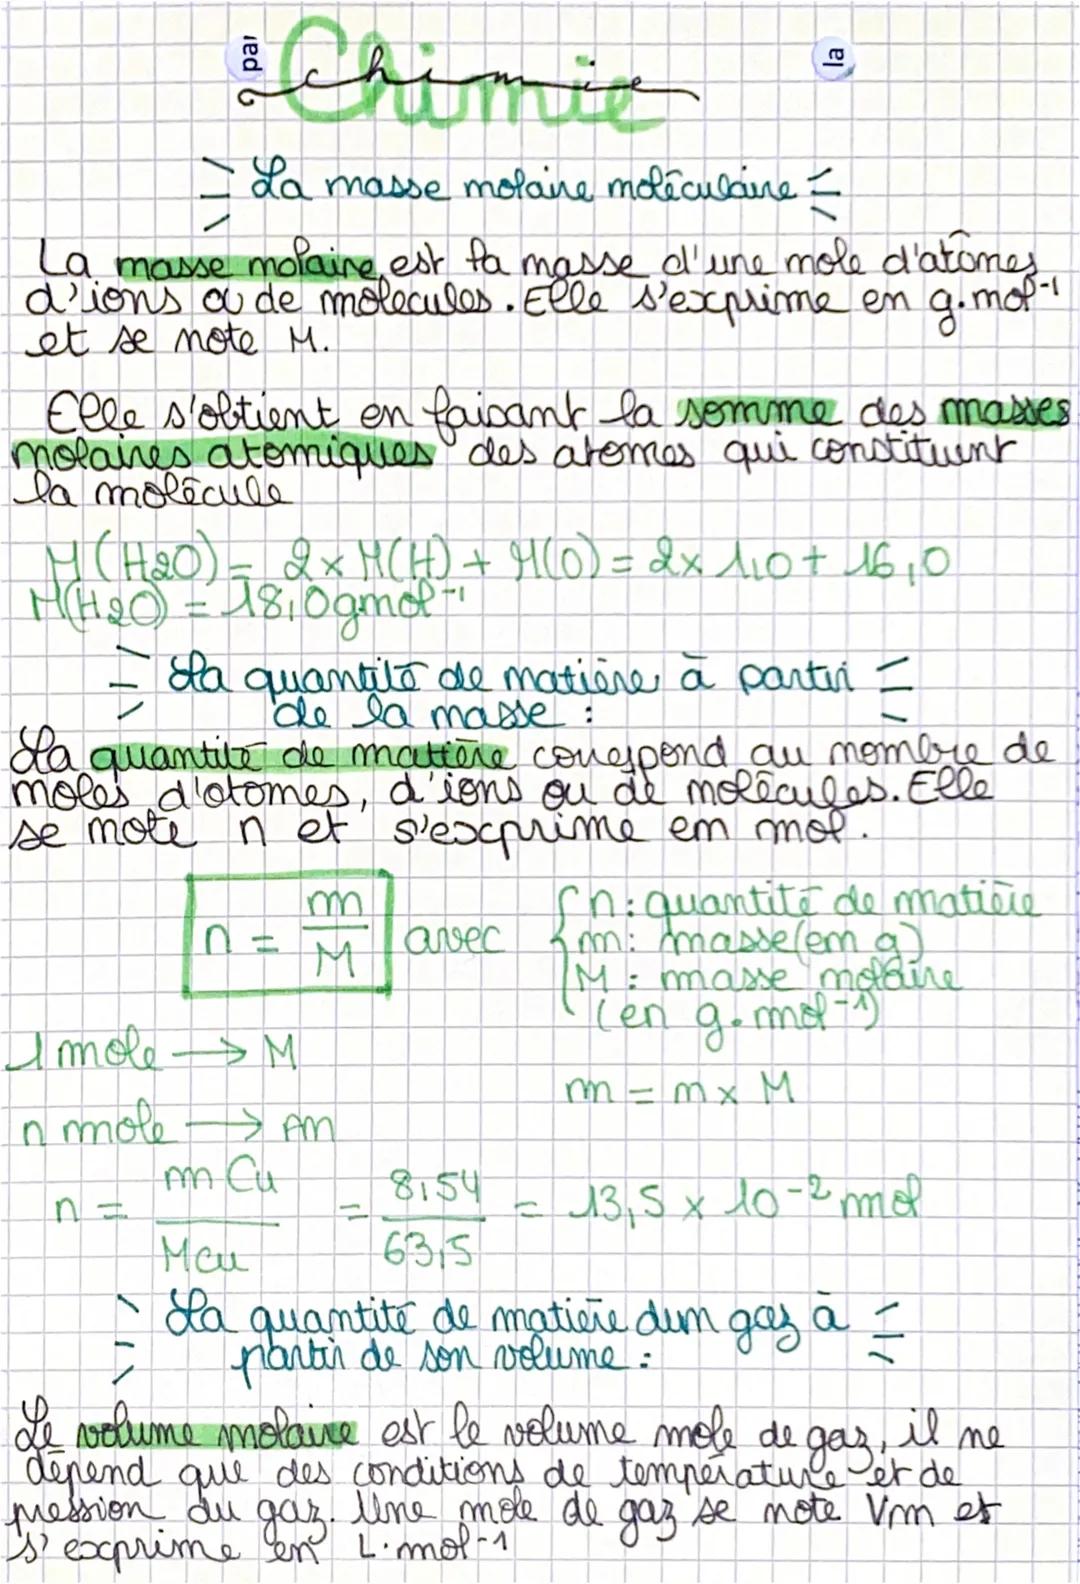 par
la
Chimie
chimie
La masse molaire moléculaire
La masse molaire est la masse d'une mole d'atomes
d'ions ou de molecules. Elle s'exprime en g.mol-1
et se note M.
Elle s'obtient en faisant la somme des masses
molaires atomiques des atomes qui constituent
la molécule
M(H2O) = 2x M(H) + M(O) = 2x 1,0 + 16,0
M(H2O) = 18,0gmol-1
La quantité de matière à partir
de la masse :
La quantité de matière correspond au nombre de
moles d'atomes, d'ions ou de molécules. Elle
se note n et s'exprime en mol.
n = m/M avec { n : quantité de matière
m : masse(em g)
M : masse molaire
(en g.mol-1)
1 mole → M
m = n x M
n mole → m
n = m Cu / M cu = 8,54 / 63,5 = 13,5 x 10-2 mol
La quantité de matière dum gaz à
partir de son volume :
Le volume molaire est le volume mole de gaz, il ne
dépend que des conditions de température et de
pression du gaz. Une mole de gaz se note Vm et
s'exprime en L.mol-1